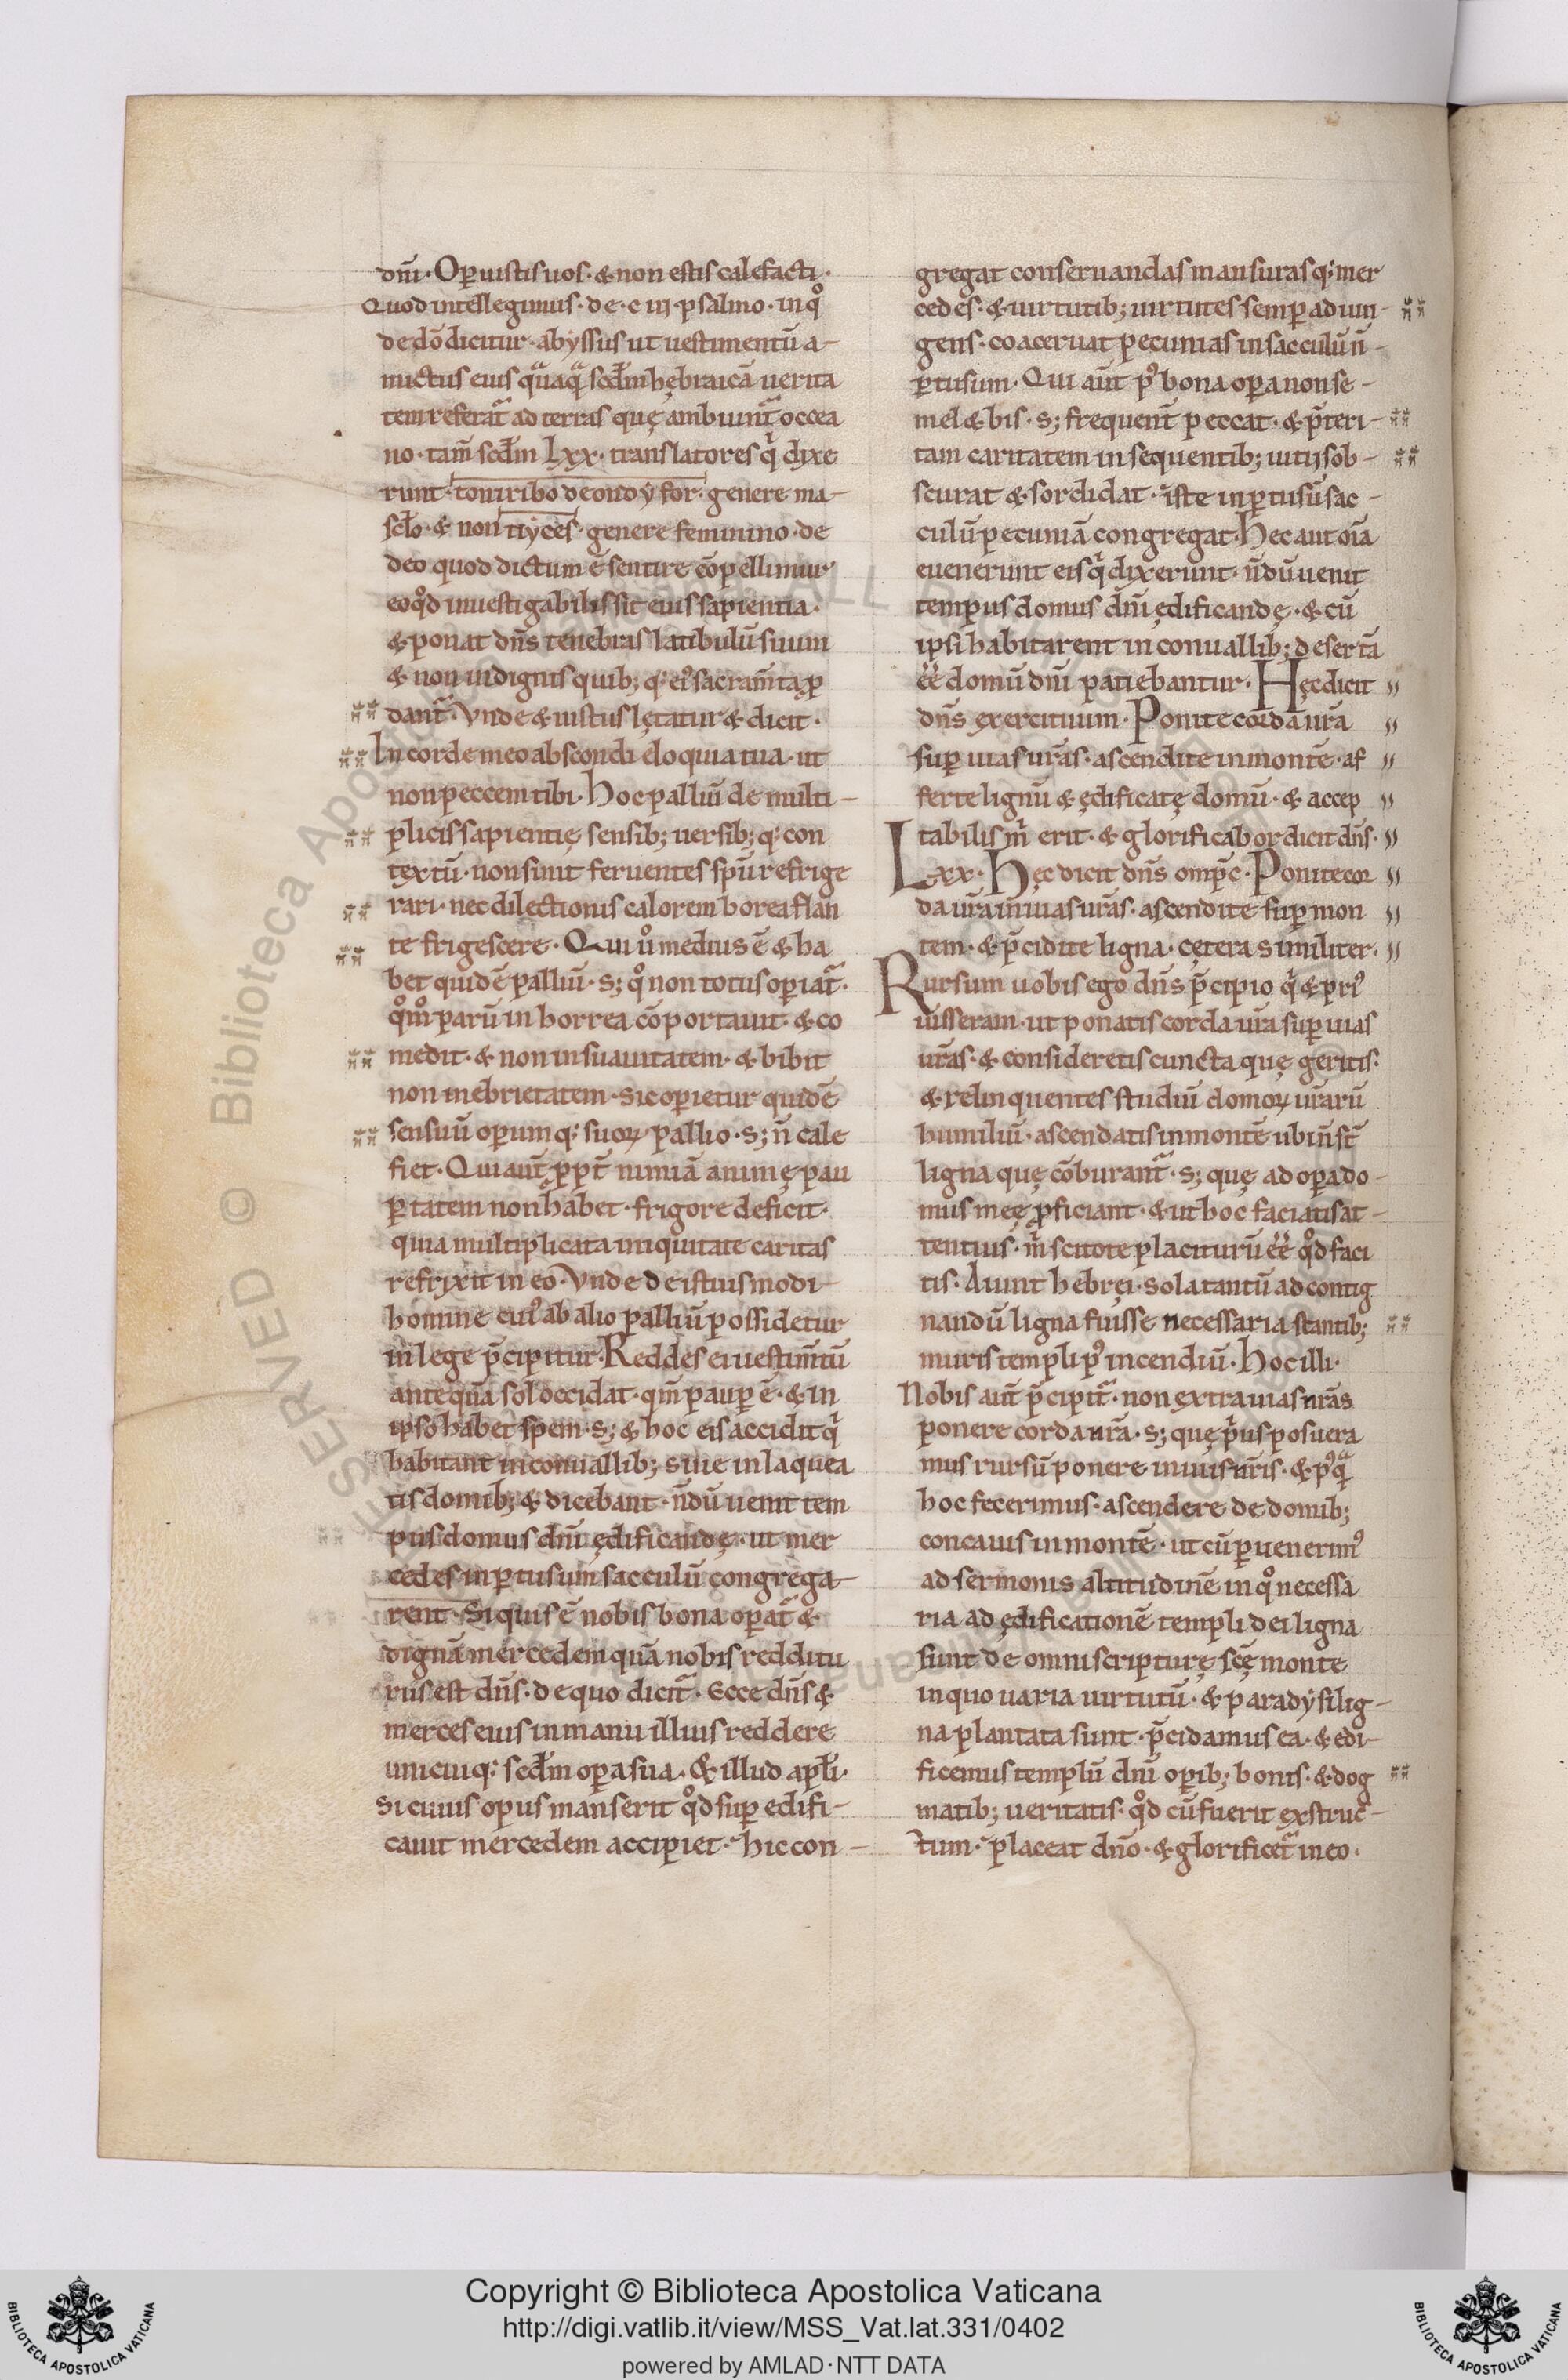 dn̄i · Oꝑuistis uos · & non estis calefacti ·
Quod intellegimus · de · c iij · psalmo · in qͦ
de dō dicitur · abyssus ut uestimentū a-
mictus eius qͣuaqͣ scd̄m hębraicā uerita
tem referat̄ ad terras quę ambiunt̄ occea
no · tam̄ scd̄m Lxx · translatores qͥ dixe
runt · toniribo deondẏ for · genere ma-
scło · & non tiyces · genere feminino · de
deo quod dictum ē sentire cōpellimur
eo qͦd inuestigabilis sit eius sapientia ·
& ponat dn̄s tenebras latibulū suum
& non indignis quib; q; ei᾽ sacram̄ta ꝓ
dant̄ · Vnde & iustus lętatur & dicit ·
In corde meo abscondi eloquia tua · ut
non peccem tibi · Hoc palliū de multi-
plicis sapientię sensib; uersib; q; con
textū · non sinit feruentes spū refrige
rari · nec dilectionis calorem borea flan
te frigescere · Qui uͦ medius ē & ha
bet quidē palliū · s; qͦ non totus oꝑiat̄ ·
qͦm̄ parū in horrea cōportauit · & co
medit · & non in suauitatem · & bibit
non in ebrietatem · sic oꝑietur quidē
sensuū oꝑum q; suoꝝ pallio · s; n̄ cale
fiet · Qui aūt ꝓpt̄ nimiā animę pau
ꝑtatem non habet · frigore deficit ·
quia multiplicata iniquitate caritas
refrixit in eo · Vnde de istiusmodi
homine cui᾽ ab alio palliū possidetur
in lege p̄cipitur · Reddes ei uestim̄tū
ante quā sol occidat · qm̄ pauꝑ ē · & in
ipso habet spem · s; & hoc eis accidit qͥ
habitant in conuallib; siue in laquea
tis domib; & dicebant · n̄dū uenit tem
pus domus dn̄i ędificandę · ut mer
cedes in ꝑtusum sacculū congrega
rent · Si quis ē nobis bona oꝑat̄ &
dignā mercedem quā nobis redditu
rus est dn̄s · de quo dicit̄ · Ecce dn̄s &
merces eius in manu illius reddere
unicuiq; scd̄m oꝑa sua · & illud apłi ·
Si cuius opus manserit qͦd suꝑ edifi-
cauit mercedem accipiet · hic con-
gregat conseruandas mansuras q; mer
cedes · & uirtutib; uirtutes semꝑ adiun-
gens · coaceruat pecunias in sacculū n̄-
ꝑtusum · Qui aūt p᾽ bona oꝑa non se-
mel & bis · s; frequent̄ peccat · & p̄teri-
tam caritatem insequentib; uitijs ob-
scurat & sordidat · iste in ꝑtusū sac-
culū pecuniā congregat · Hec aut oīa
euenerunt eis qͥ dixerunt · n̄dū uenit
tempus domus dn̄i ędificandę · & cū
ipsi habitarent in conuallib; desertā
ēē domū dn̄i patiebantur · Hęc dicit
dn̄s exercituum · Ponite corda ur̄a
suꝑ uias ur̄as · ascendite in montē · af
ferte lignū & ędificatę domū · & accep
tabilis mͥ erit · & glorificabor dicit dn̄s ·
Lxx · Hęc dicit dn̄s omp̄c · Ponite cor
da ur̄a in uias ur̄as · ascendite suꝑ mon
tem · & p̄cidite ligna · cętera similiter ·
Rursum uobis ego dn̄s p̄cipio qͥ & pri᾽
iusseram · ut ponatis corda ur̄a suꝑ uias
ur̄as · & consideretis cuncta quę geritis ·
& relinquentes studiū domoꝝ ur̄arū
humiliū · ascendatis in montē ubi n̄ st̄
ligna quę cōburant̄ · s; quę ad oꝑa do-
mus meę ꝓficiant · & ut hoc faciatis at-
tentius · mͥ scitote placiturū ēē qͦd faci
tis · Aiunt hebręi · sola tantū ad contig
nandū ligna fuisse necessaria stantib;
muris templi p᾽ incendiū · Hoc illi ·
Nobis aūt p̄cipit̄ · non extra uias nr̄as
ponere corda nr̄a · s; quę pͥus posuera
mus rursū ponere in uiis nr̄is · & p᾽qͣ
hoc fecerimus · ascendere de domib;
concauis in montē · ut cū ꝑuenerim᾽
ad sermonis altitudinē in qͦ necessa
ria ad ędificationē templi dei ligna
sunt de omni scripturę scę̄ monte
in quo uaria uirtutū · & paradẏsi lig-
na plantata sunt · p̄cidamus ea · & edi-
ficemus templū dn̄i oꝑib; bonis · & dog
matib; ueritatis · qͦd cū fuerit exstruc-
tum · placeat dn̄o · & glorificet̄ in eo ·
Copyright © Biblioteca Apostolica Vaticana
http://digi.vatlib.it/view/MSS_Vat.lat.331/0402
powered by AMLAD · NTT DATA
BIBLIOTECA APOSTOLICA VATICANA
BIBLIOTECA APOSTOLICA VATICANA